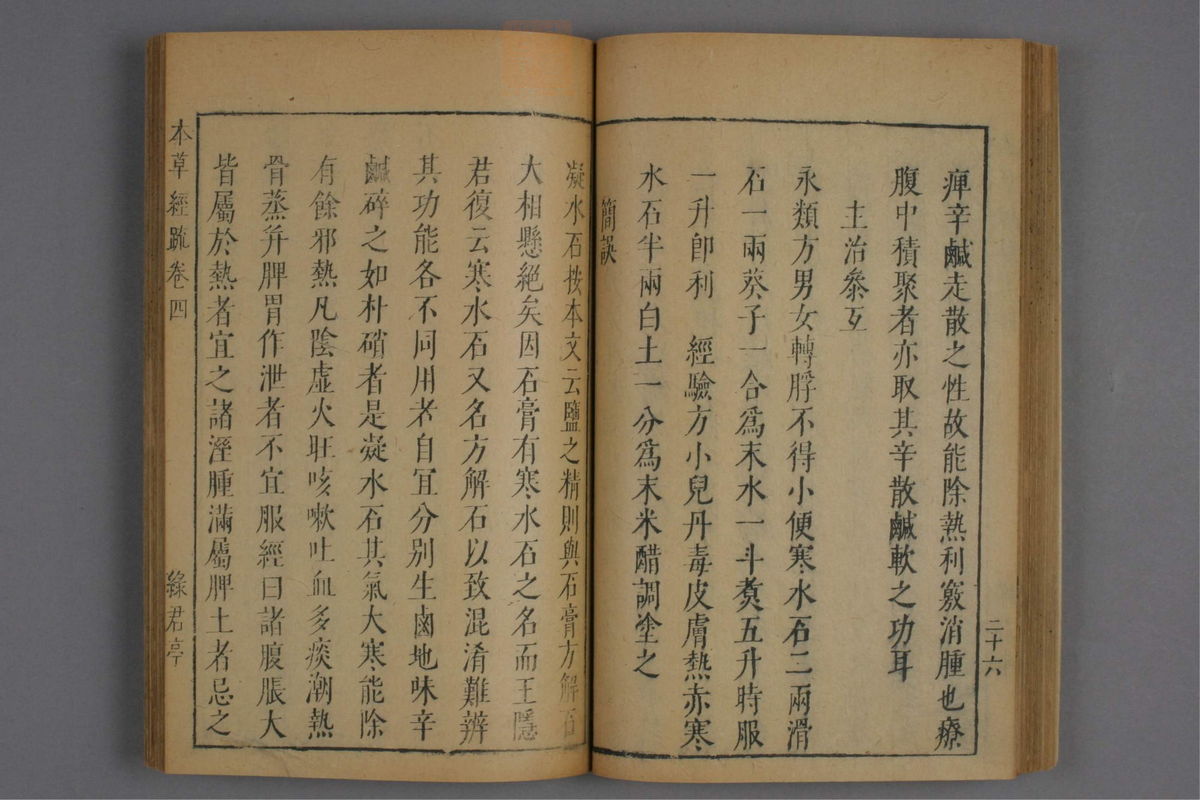 二十六
痺辛鹹走散之性故能除熱利竅消腫也療
腹中積聚者亦取其辛散鹹軟之功耳
主治叅互
永類方男女轉脬不得小便寒水石二兩滑
石一兩葵子一合爲末水一斗煑五升時服
一升卽利　經驗方小兒丹毒皮膚熱赤寒
水石半兩白土一分爲末米醋調塗之
簡誤
凝水石按本文云鹽之精則與石膏方解石
大相懸絕矣因石膏有寒水石之名而王隱
君復云寒水石又名方解石以致混淆難辨
其功能各不同用者自宜分別生鹵地味辛
鹹碎之如朴硝者是凝水石其氣大寒能除
有餘邪熱凡陰虛火旺咳嗽吐血多痰潮熱
骨蒸幷脾胃作泄者不宜服經曰諸腹脹大
皆屬於熱者宜之諸溼腫滿屬脾土者忌之
本草經疏卷四
綠君亭